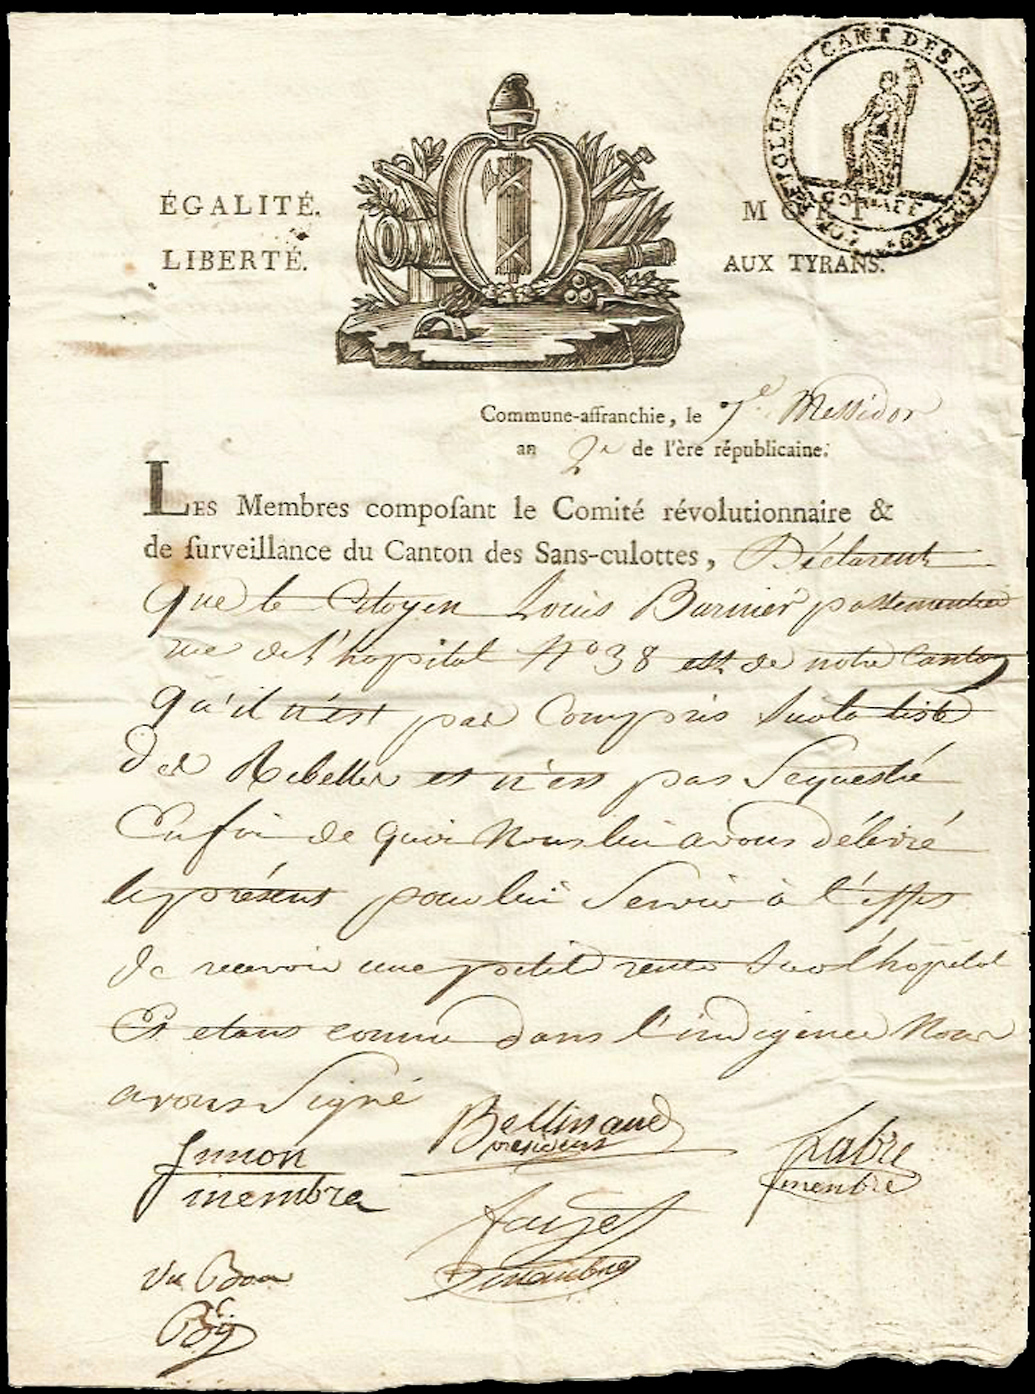 COMITÉ RÉVOLUT DU CANT DES SANS CULOTTES
COM. AFF
ÉGALITÉ. MORT
LIBERTÉ. AUX TYRANS.
Commune-affranchie, le 7e Messidor
an 2e de l'ère républicaine.
LES Membres compoſant le Comité révolutionnaire &
de ſurveillance du Canton des Sans-culottes, Déclarent
que le Citoyen Louis Burnier passementier
rue de l'hopital No 38 est de notre Canton
qu'il n'est pas Compris Sur la liste
des Rebelles et n'est pas Sequestré
En foi de quoi Nous lui avons délivré
le présent pour lui Servir à l'effet
de recevoir une petite rente Sur l'hopital
Et etant connu dans l'indigence Nous
avons Signé
Bellinaud
president
membre
Labre
membre
Fayet
membre
Vu Bon